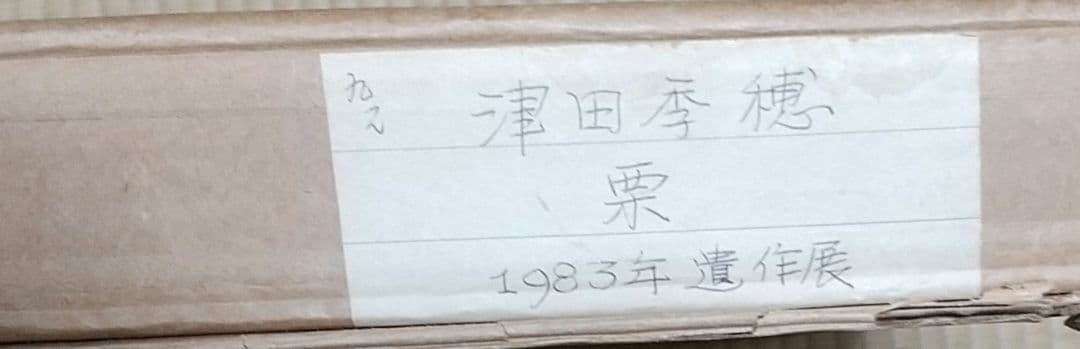 津田季穂
栗
1983年遺作展